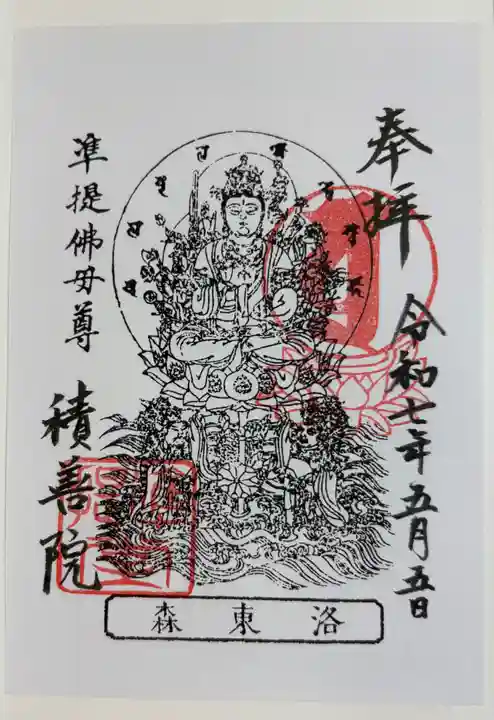 奉拝
令和七年五月五日
準提佛母尊
積善院
森東洛